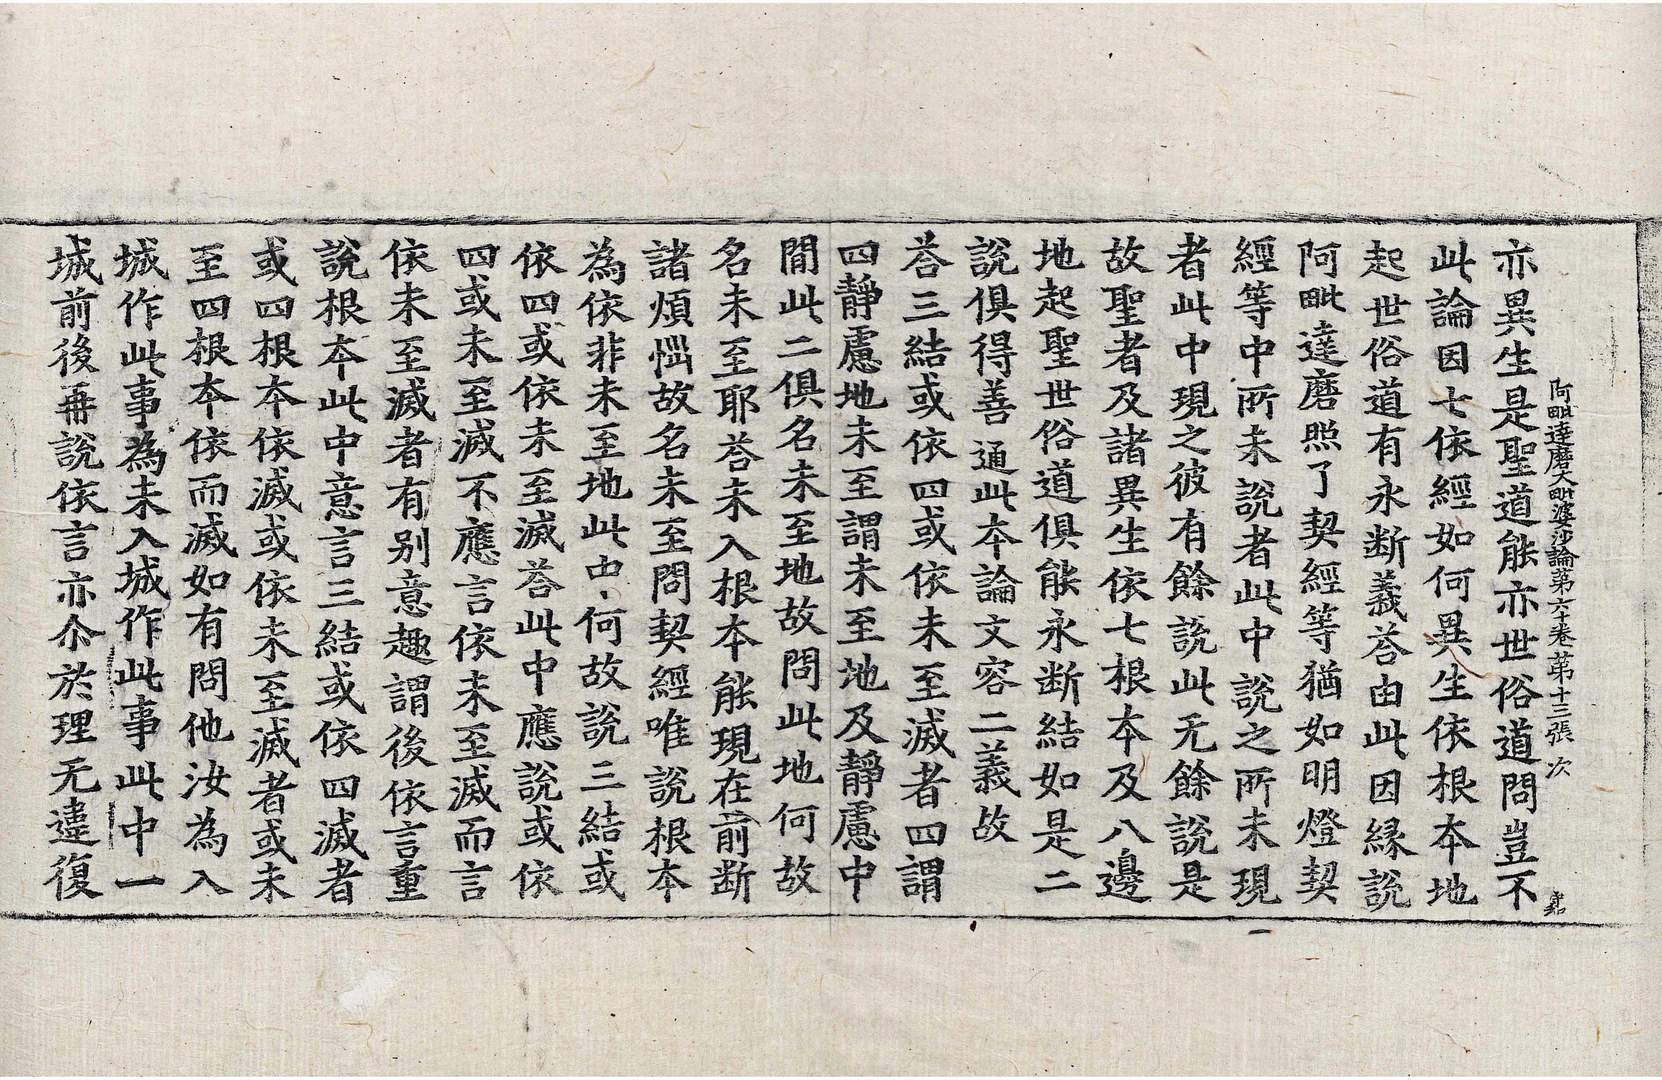 阿毗達磨大毗婆沙論第六十卷第十三張 次
亦異生是聖道能亦世俗道問豈不
此論因七依經如何異生依根本地
起世俗道有永断義荅由此因緣說
阿毗達磨照了契經等猶如明燈契
經等中所未說者此中說之所未現
者此中現之彼有餘說此无餘說是
故聖者及諸異生依七根本及八邊
地起聖世俗道俱能永断結如是二
說俱得善通此本論文容二義故
荅三結或依四或依未至滅者四謂
四靜慮地未至謂未至地及靜慮中
閒此二俱名未至地故問此地何故
名未至耶荅未入根本能現在前断
諸煩惱故名未至問契經唯說根本
為依非未至地此中何故說三結或
依四或依未至滅荅此中應說或依
四或未至滅不應言依未至滅而言
依未至滅者有别意趣謂後依言重
說根本此中意言三結或依四滅者
或四根本依滅或依未至滅者或未
至四根本依而滅如有問他汝為入
城作此事為未入城作此事此中一
城前後再說依言亦尒於理无違復